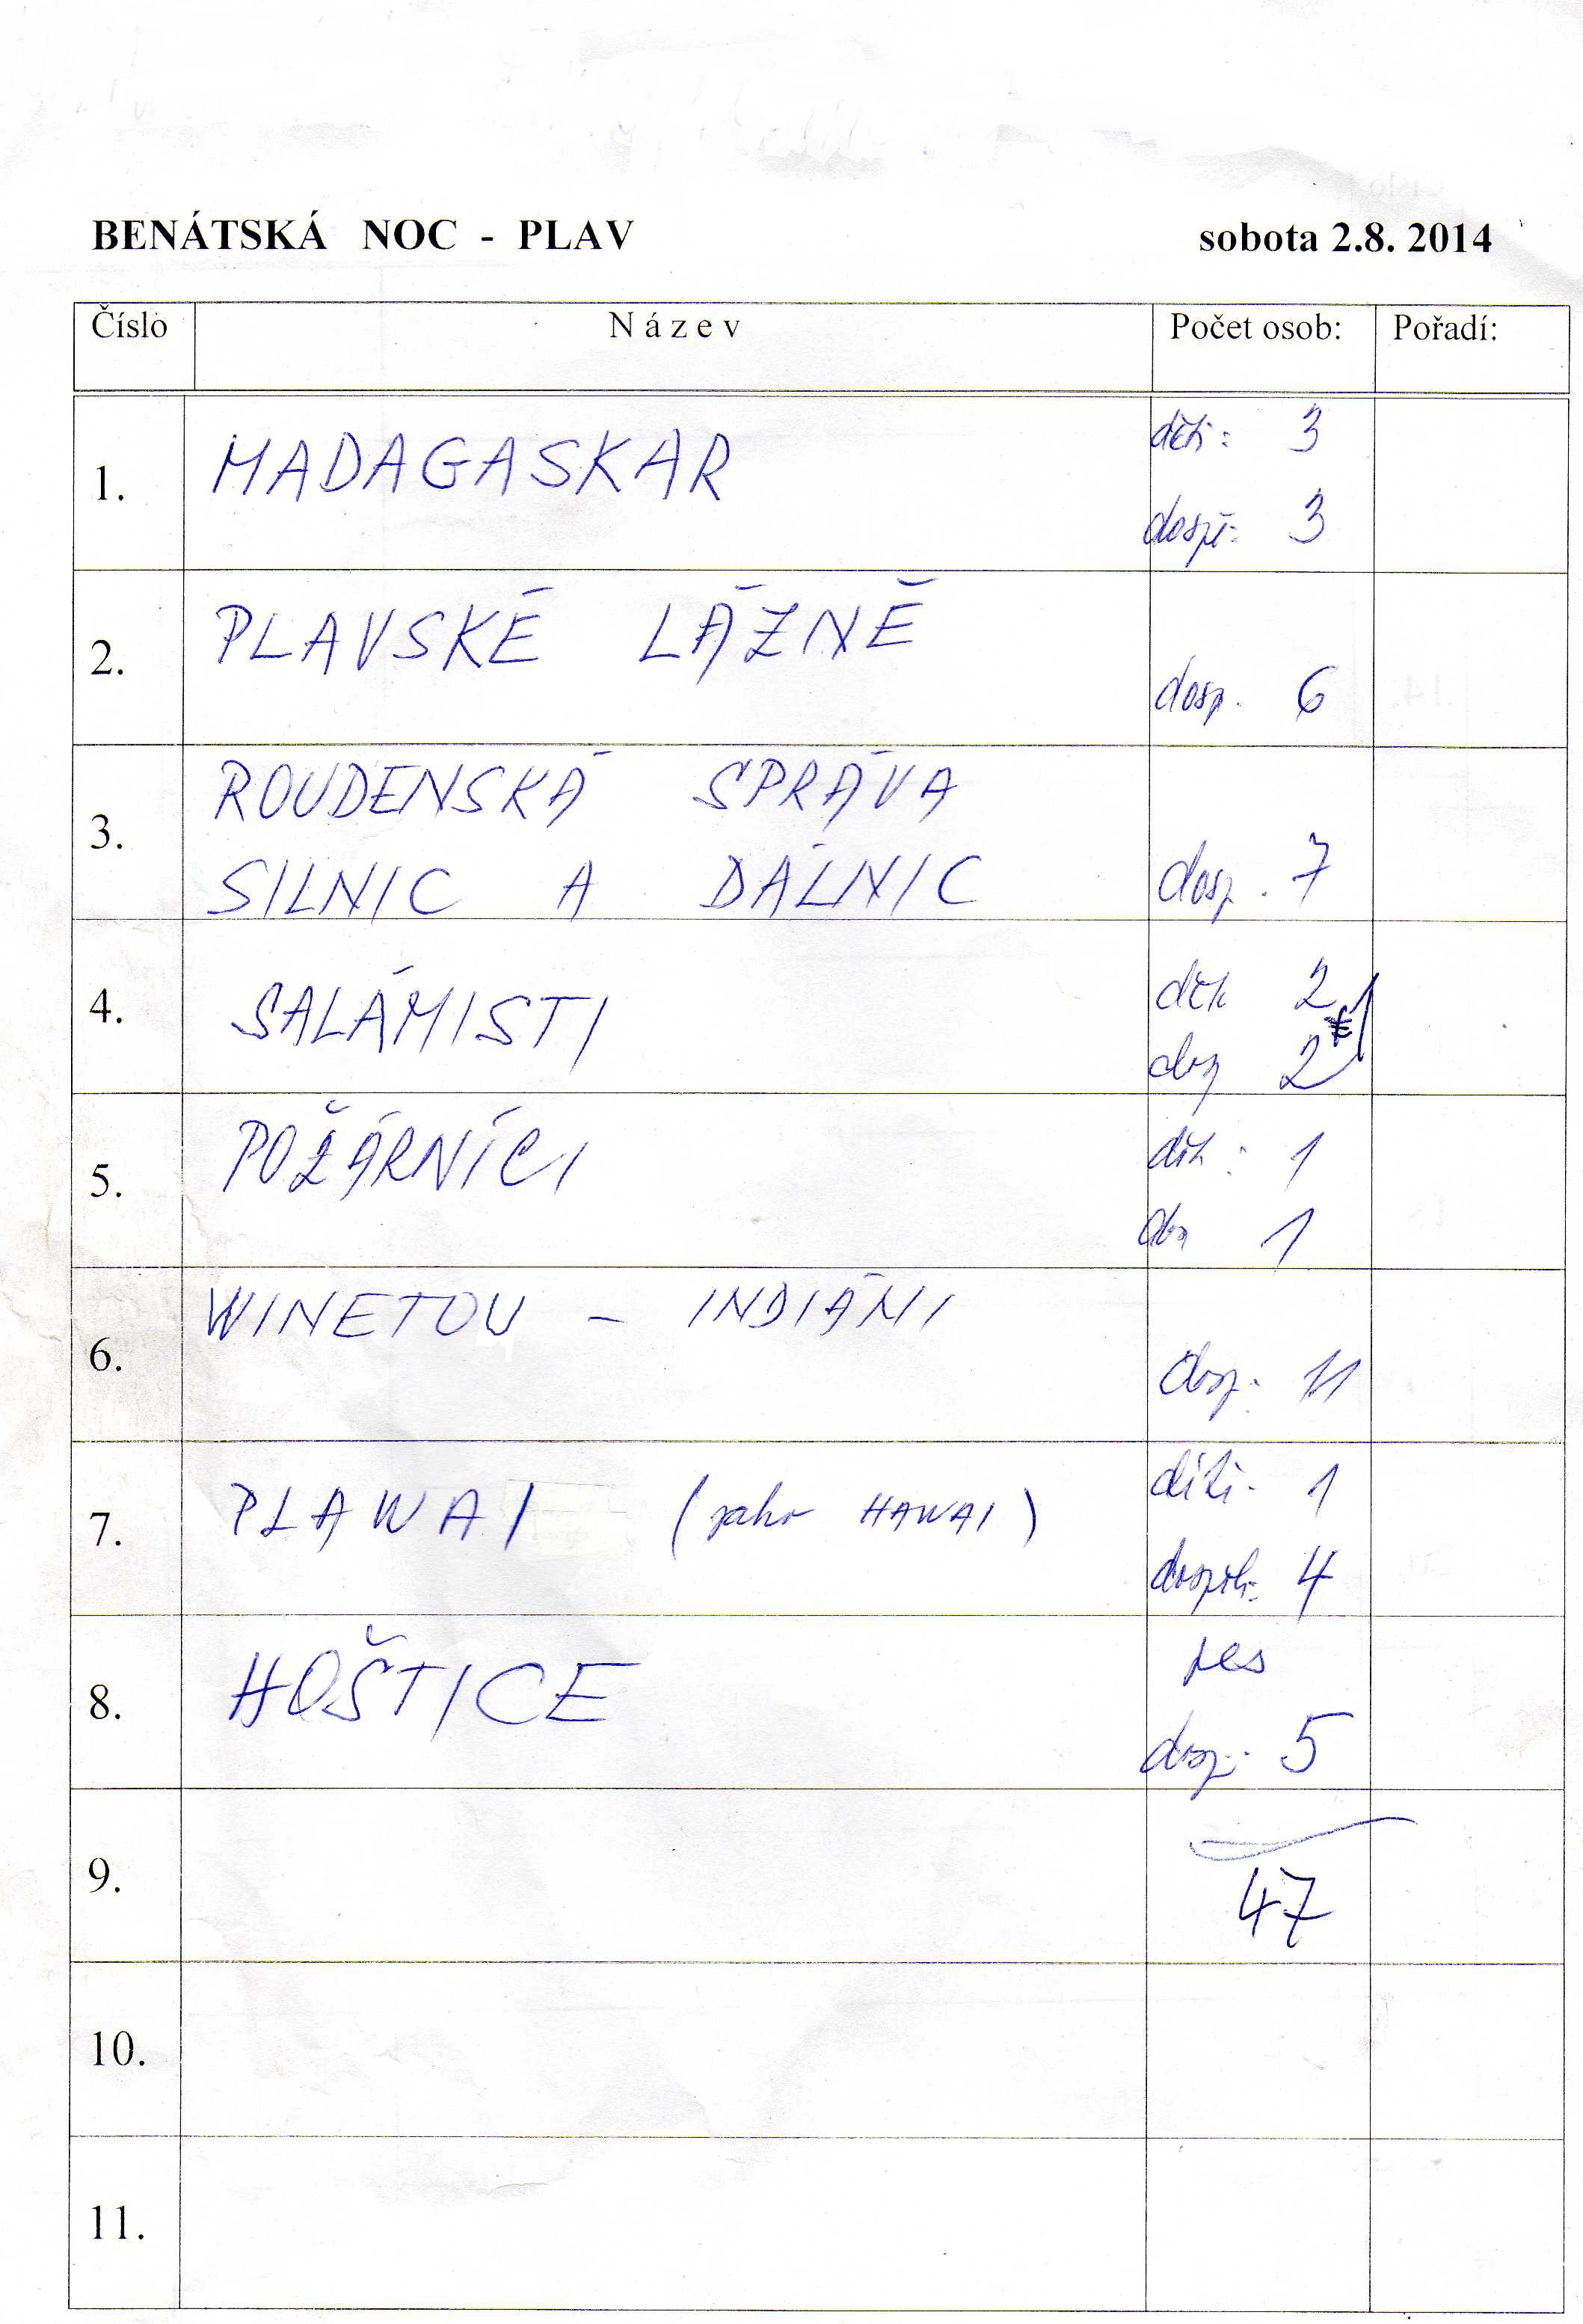 BENÁTSKÁ NOC - PLAV sobota 2.8. 2014
Číslo Název Počet osob: Pořadí:
děti: 3
1. MADAGASKAR
dosp: 3
2. PLAVSKÉ LÁZNĚ
dosp. 6
ROUDENSKÁ SPRÁVA
3.
SILNIC A DÁLNIC dosp. 7
děti 2
4. SALÁMISTI 1
dosp 2
POŽÁRNÍCI děti: 1
5.
1
WINETOU - INDIÁNI
6.
dosp: 11
děti: 1
7. PLAWAI (jako HAWAI)
dospělí: 4
pes
8. HOŠTICE
dosp: 5
9.
47
10.
11.